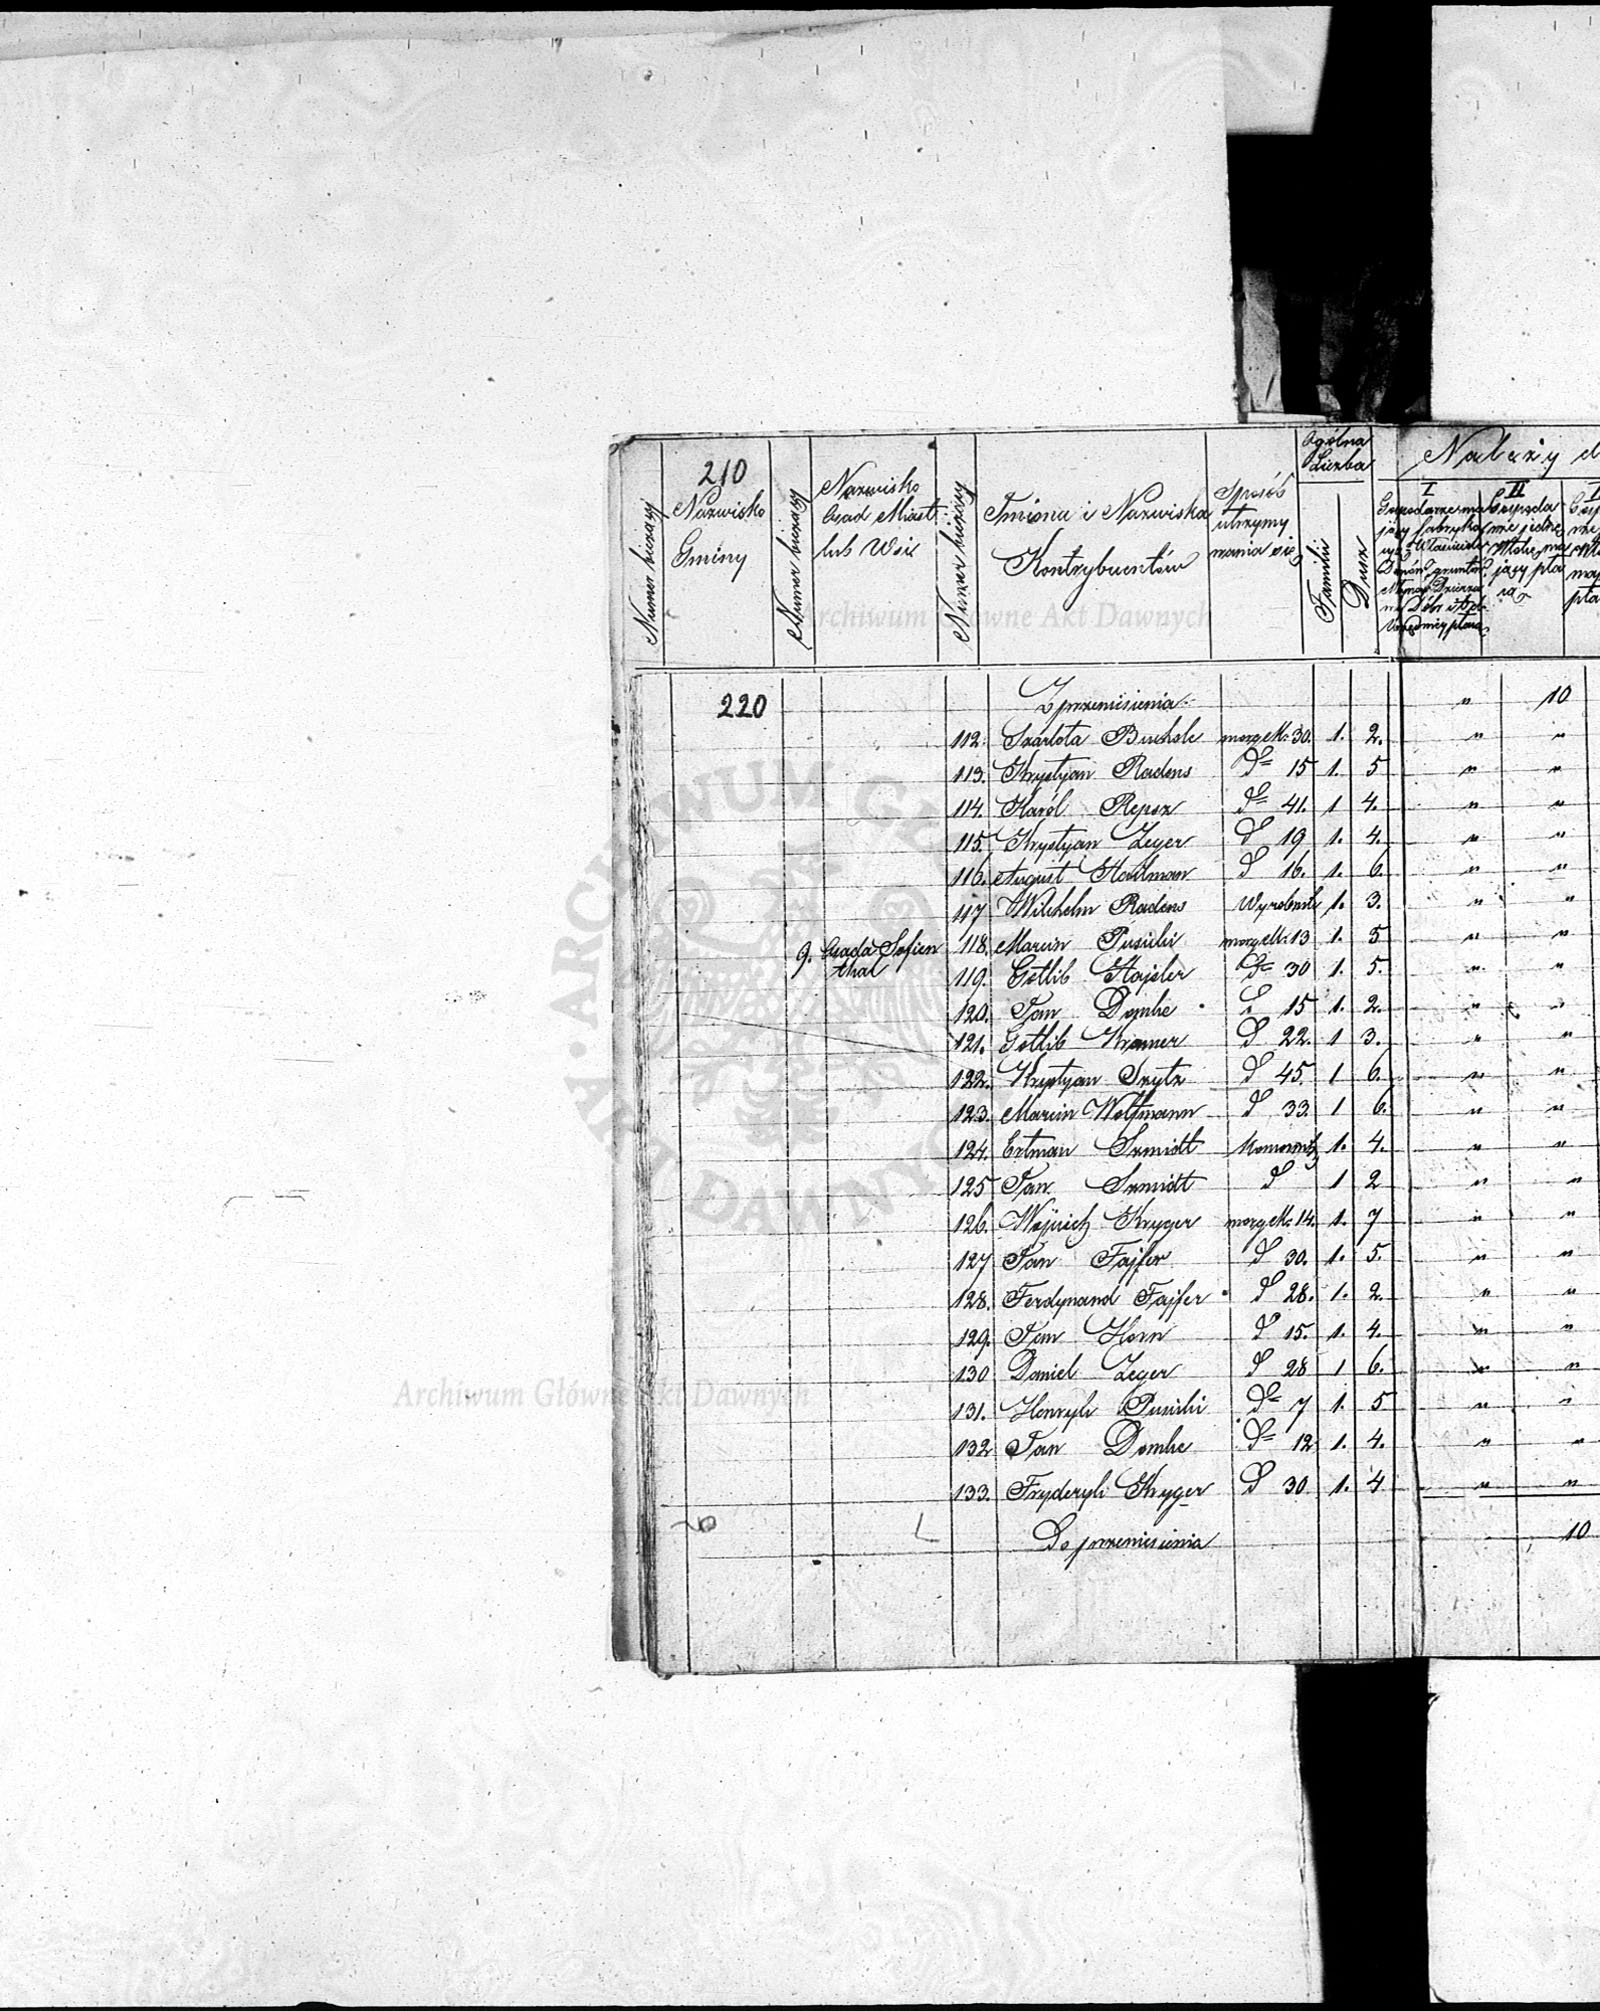 210
Numer bieżący
Nazwisko
Gminy
Numer bieżący
Nazwisko
Osad Miast
lub Wsi
Numer bieżący
Imiona i Nazwiska
Kontrybuentów
Sposób
utrzymy
mania się
Ogólna
Liczba
Familii
Dusz
Należy d
I
II
220
Z przeniesienia " 10
112. Szarlota morg M. 30. 1. 2. " "
113. Krystyan Radens d= 15 1. 5 " "
114. Karól Repsz d= 41. 1 4. " "
115. Krystyan Zeger d 19 1. 4. " "
116. August d 16. 1. 6. " "
117 Wilchelm Radens Wyrobnik 1. 3. " "
9. Osada Sofien 118. Marcin Pusicki morg M. 13 1. 5 " "
thal 119. Gotlib Hajsler d= 30 1. 5. " "
120. Jan Domke 15 1. 2. " "
121. Gotlib Kramer d 22. 1 3. " "
122. Krystyan Szytz d 45. 1 6. " "
123. Marcin Wolfmann d 33. 1 6. " "
124. Ertman Szmidt Komornik 1. 4. " "
125 Jan Szmidt d 1 2 " "
126. Wojciech Kryger morg M. 14. 1. 7 " "
127 Jan Fajfer d 30. 1. 5. " "
128. Ferdynand Fajfer d 28. 1. 2. " "
129. Jan Horn d 15. 1. 4. " "
130 Daniel Zeger d 28 1 6. " "
131. Henryk Pusicki d= 7 1. 5 " "
132 Jan Domke d= 12 1. 4. " "
133. Fryderyk Kryger d 30 1. 4 " "
Do przeniesienia 10
Archiwum Główne Akt Dawnych
Archiwum Główne Akt Dawnych